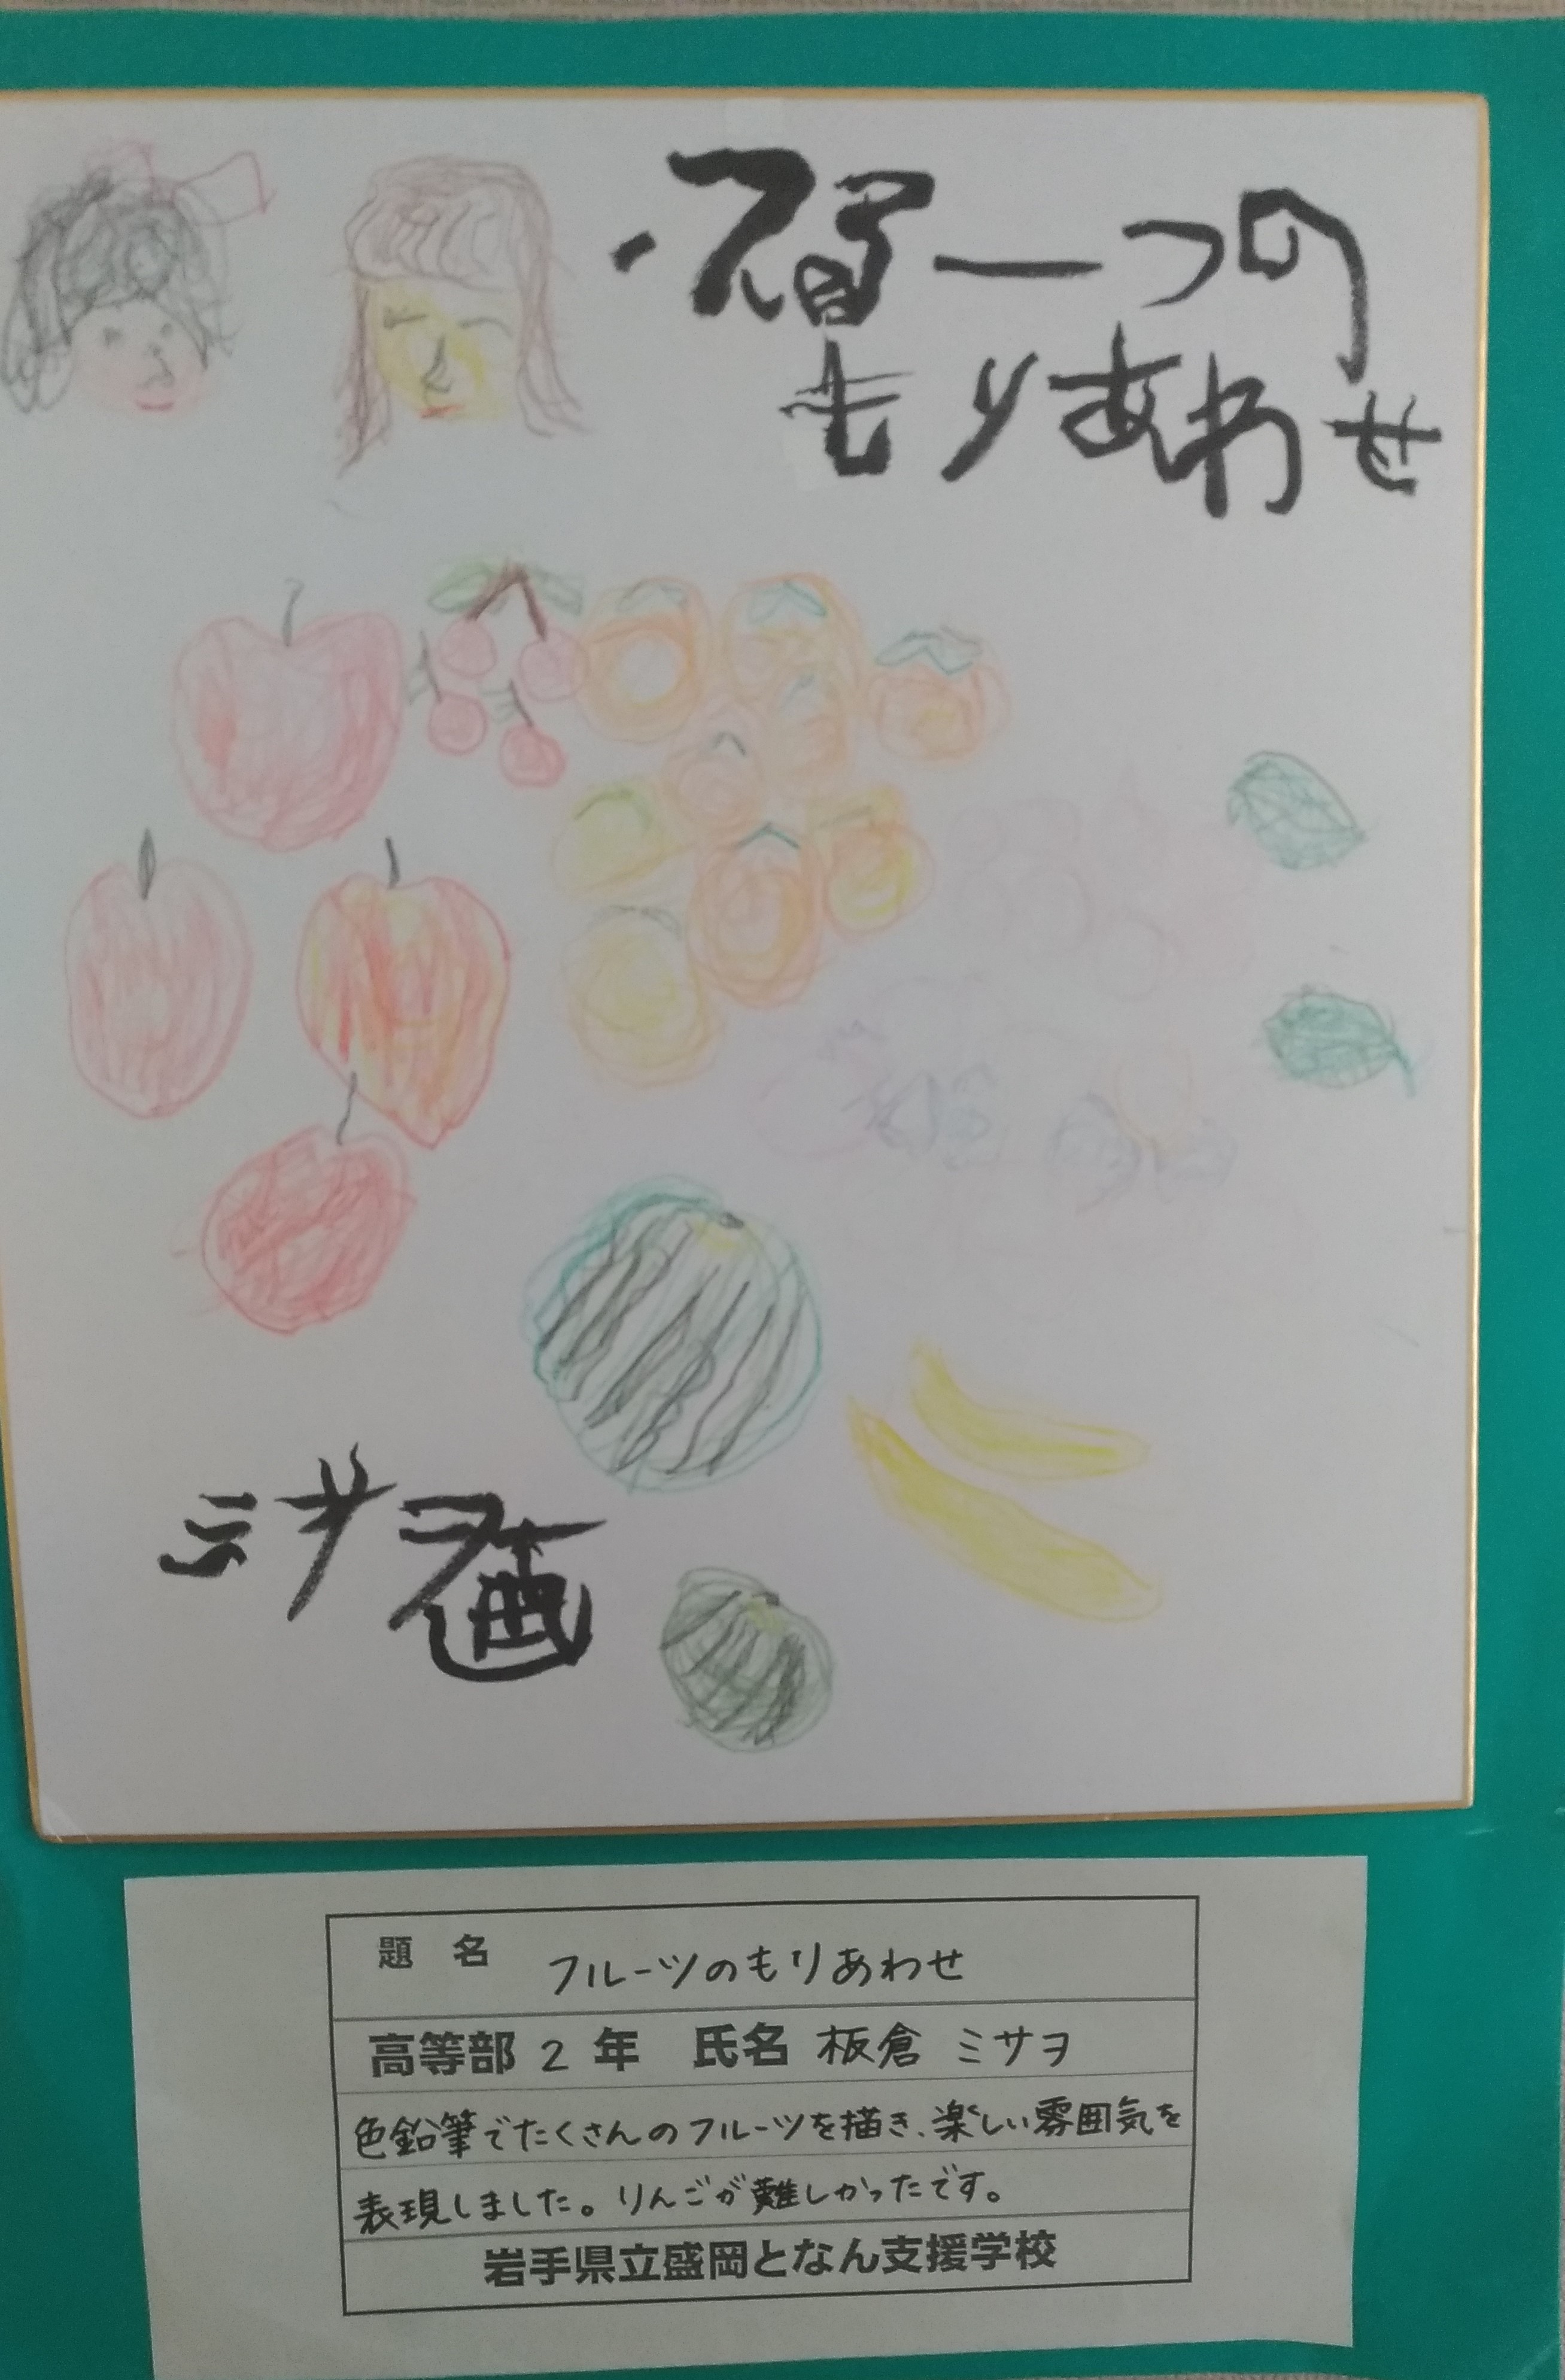 もりあわせ
ミサヲ画
題 名 フルーツのもりあわせ
高等部 2 年 氏名 板倉 ミサヲ
色鉛筆でたくさんのフルーツを描き、楽しい雰囲気を
表現しました。りんごが難しかったです。
岩手県立盛岡となん支援学校